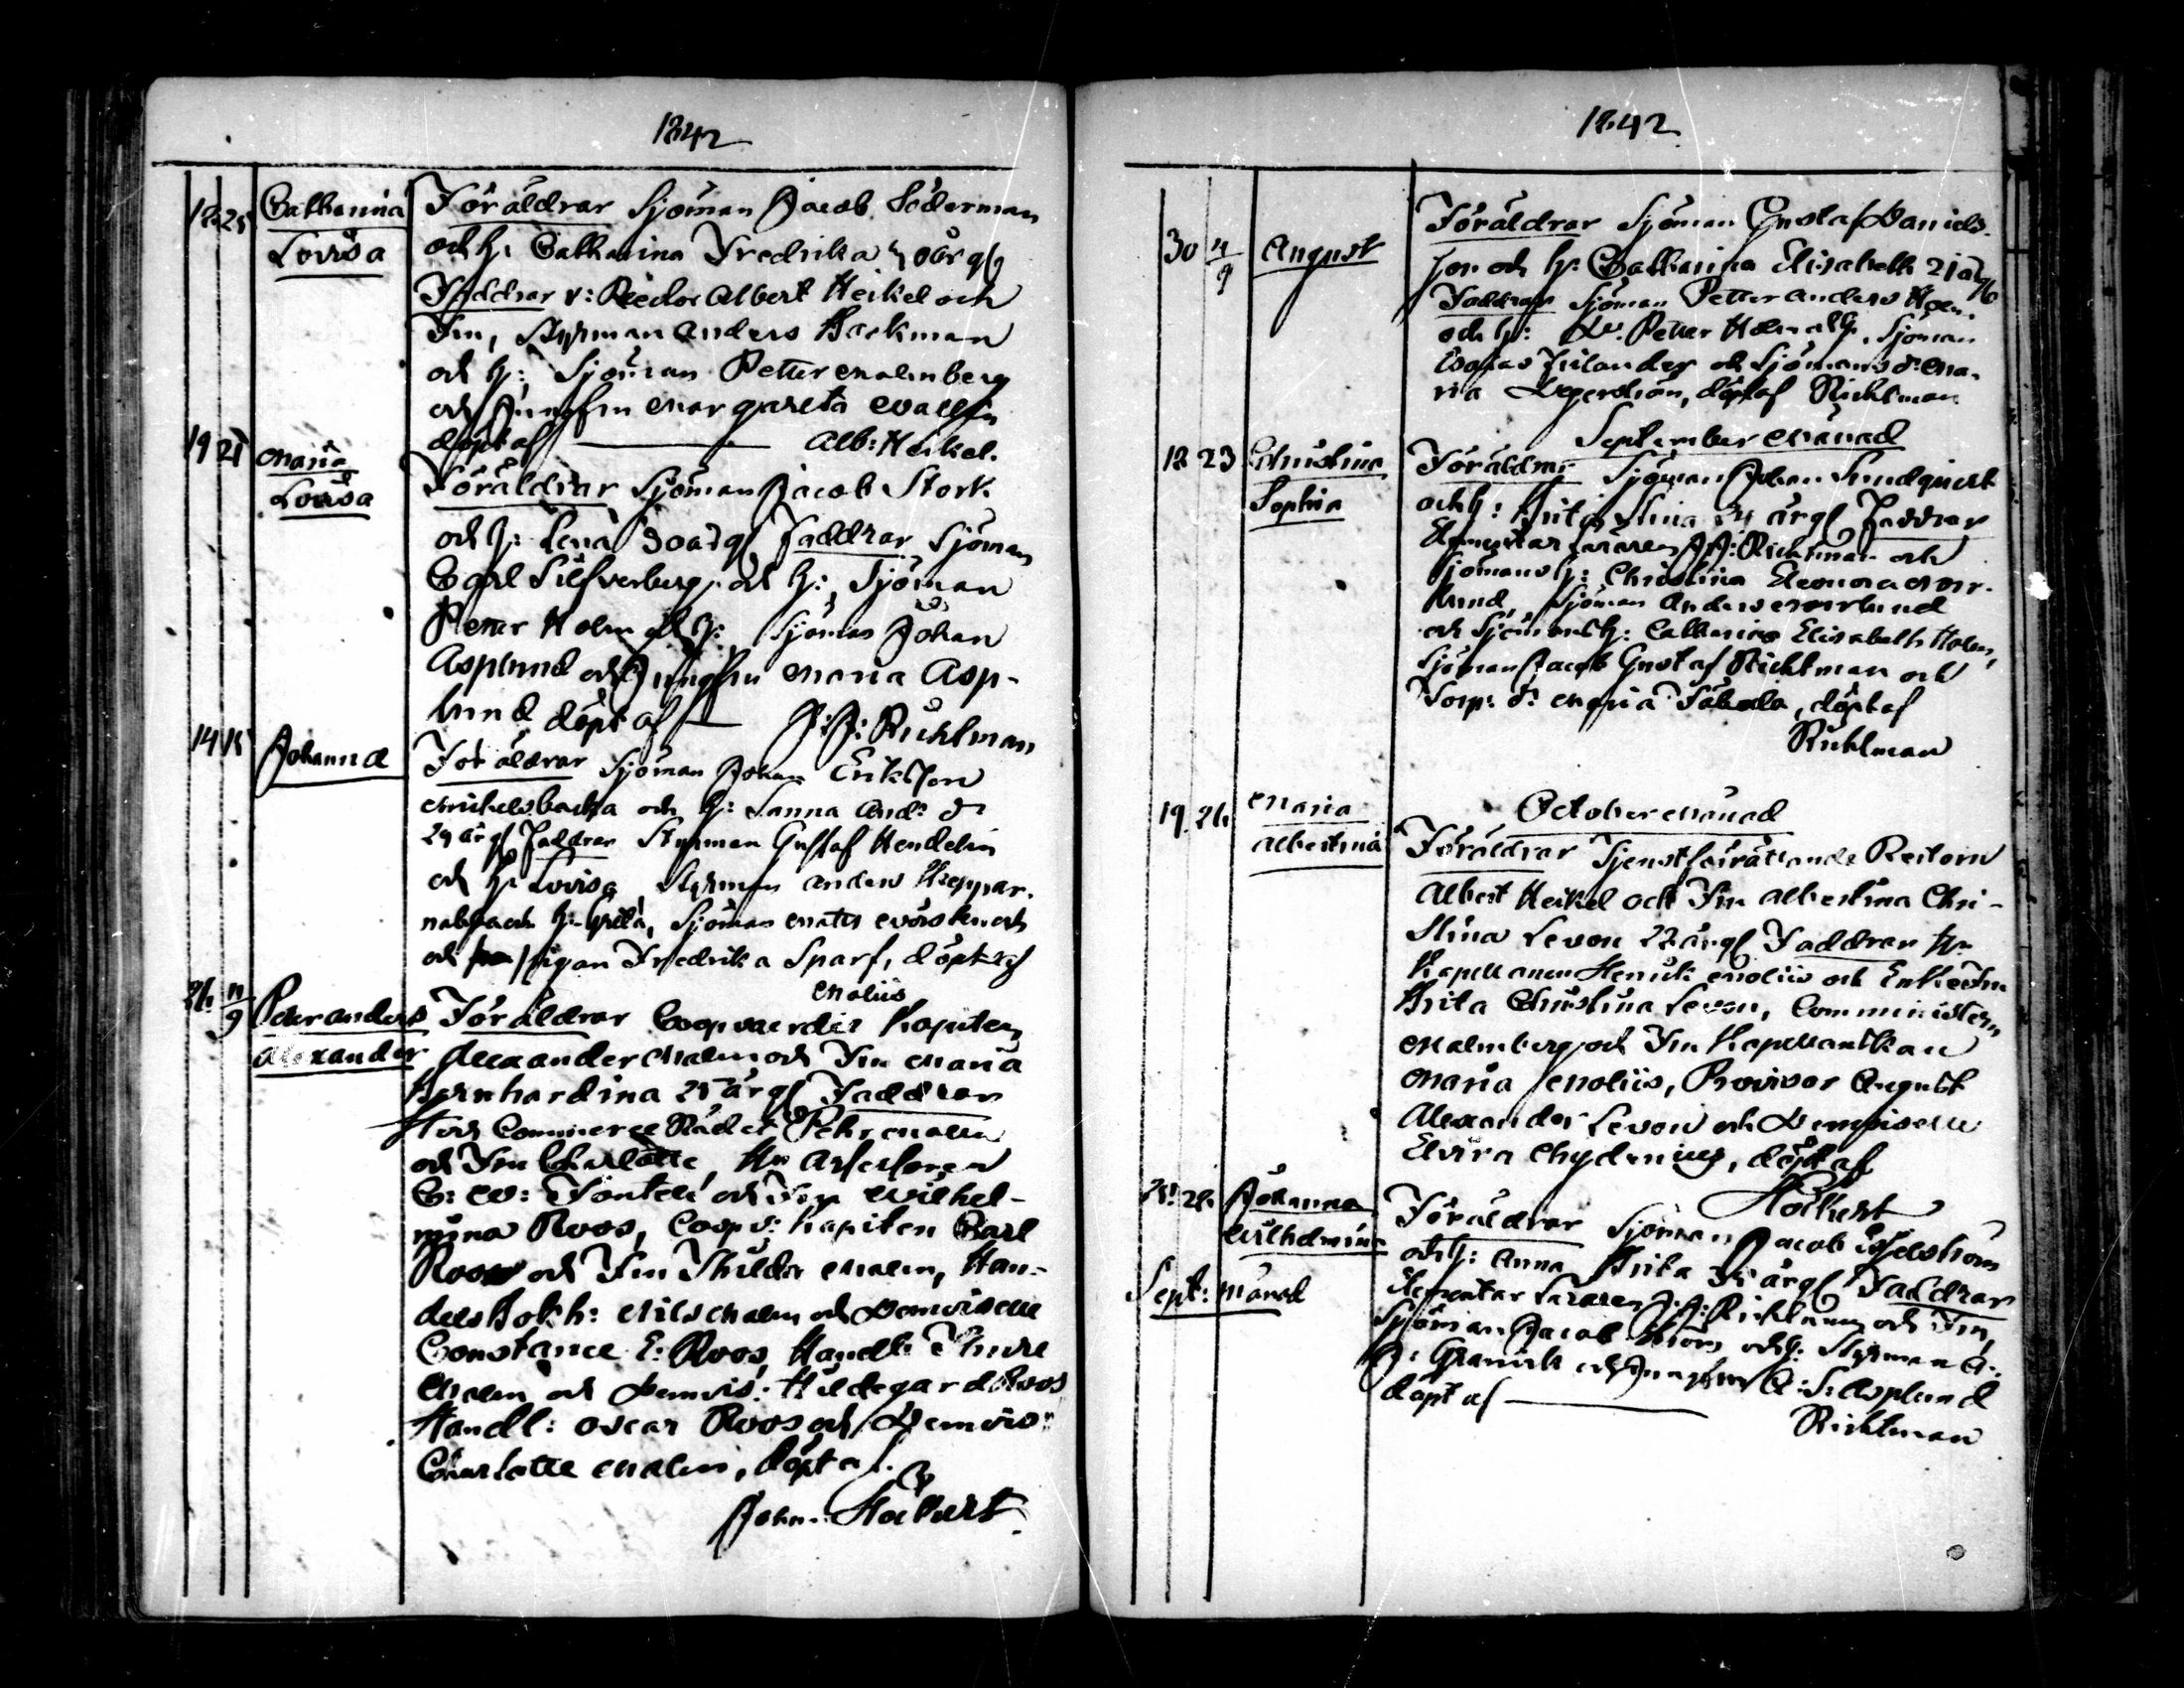 1842
18 25 Catharina Föräldrar Sjöman Jacob Söderman
Lovisa och h: Catharina Fredrika 40 årgl
Faddrar v: Rector Albert Heikel och
Fru, Styrman Anders Backman
och h:, Sjöman Petter Malmberg
och Jungfru Margareta Wallin
döpt af — Alb: Heikel.
19 21 Maria
Lovisa Föräldrar Sjöman Jacob Stork
och h: Lena 30 årgl Faddrar Sjöman
Carl Silfverberg och h:, Sjöman
Petter Holm och h: Sjöman Johan
Asplund och Jungfru Maria Asp-
lund döpt af — J: J: Richtman
14 15 Johanna Föräldrar Sjöman Johan Eriksson
Mickelsbacka och h: Sanna And: dr
29 årgl Faddrar Styrman Gustaf Hendelin
och h: Lovisa Styrman Anders Kleppar.
och h: Greta, Sjöman Matts
och pigan Fredrika Sparf, döpt af
Moliis
26 11/9 Peter Anders Föräldrar Coopvaerdie Kapiten
Alexander Alexander Malm och Fru Maria
Bernhardina 25 årgl Faddrar
Herr Commerce Rådet Pehr Malm
och Fru Charlotte, Hr Assessoren
C: W: Fontell och Fru Wilhel-
mina Roos, Coopv: Kapiten Carl
Roos och Fru Thilda Malm, Han-
dels Bokh: Nils Malm och Demoiselle
Constance E: Roos, Handl: Thure
Malm och Demois: Hildegard Roos
Handl: Oscar Roos och Demois:
Charlotte Malm, döpt af
John Hoekert
1842
30 4/9 August Föräldrar Sjöman Gustaf Daniels-
son och h: Catharina Elisabeth 21 årgl
Faddrar Sjöman Petter Anders Holm
och h: D:o Petter Holm och h. Sjöman
Esaias Julander och Sjömans dr Ma-
ria Segerström, döpt af Richtman
September Månad
18 23 Christina Föräldrar Sjöman Johan Sundqvist
Sophia och h: Brita Stina 34 årgl Faddrar
Elementar Läraren J: J: Richtman och
Sjömans h: Christina Eleonora Norr-
lund, Sjöman Anders Norrlund
och Sjömans h: Catharina Elisabeth Holm,
Sjöman Jacob Gustaf Richtman och
Torp: dr Maria, döpt af
Richtman
October Månad
19 26 Maria
Albertina Föräldrar Tjenstförrättande Rectorn
Albert Heikel och Fru Albertina Chri-
stina Levon 22 årgl Faddrar Hr
Kapellanen Henrik Moliis och Enkefru
Brita Christina Levon, Comministern
Malmberg och Fru Kapellanskan
Maria Moliis, Provisor August
Alexander Levon och Demoiselle
Elvira Chydenius, döpt af
Hoekert
25 26 Johanna Föräldrar Sjöman Jacob
Wilhelmina och h: Anna Brita 35 årgl Faddrar
Sept: Månad Elementar Läraren J: J: Richtman och Fru,
Sjöman Jacob och h: Styrman A:
J: Granvik och Jungfru C: S: Asplund
döpt af —
Richtman